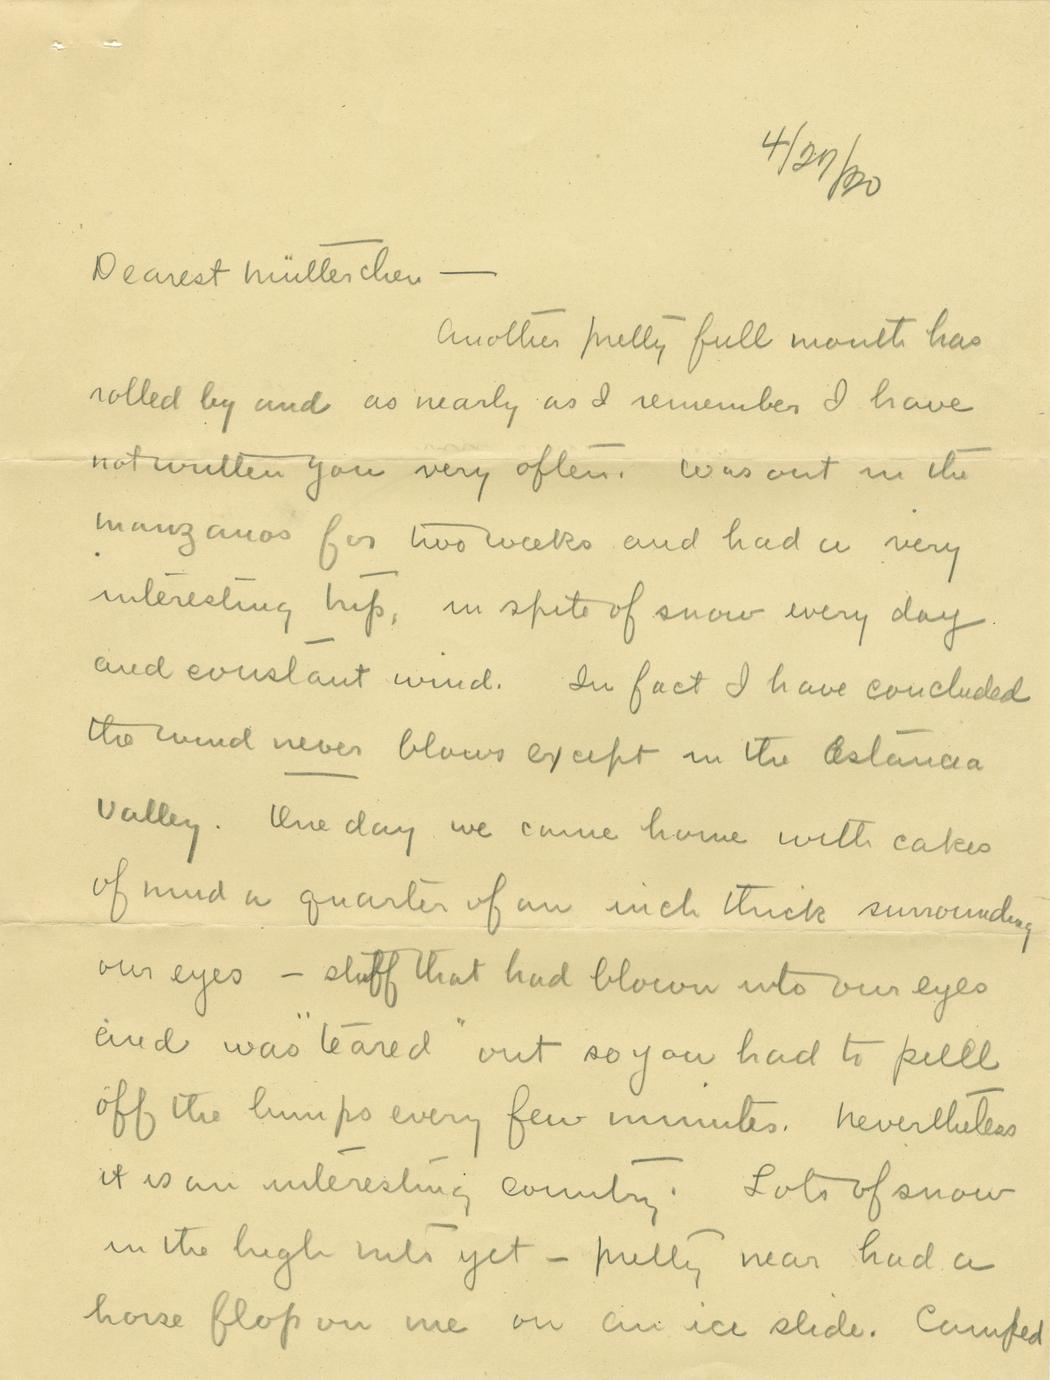 4/27/20
Dearest Mütterchen —
Another pretty full month has
rolled by and as nearly as I remember I have
not written you very often. Was out in the
Manzanos for two weeks and had a very
interesting trip, in spite of snow every day
and constant wind. In fact I have concluded
the wind never blows except in the Estancia
Valley. One day we came home with cakes
of mud a quarter of an inch thick surrounding
our eyes – stuff that had blown into our eyes
and was "teared" out so you had to pull
off the lumps every few minutes. Nevertheless
it is an interesting country. Lots of snow
in the high mts yet – pretty near had a
horse flop on me on an ice slide. Camped